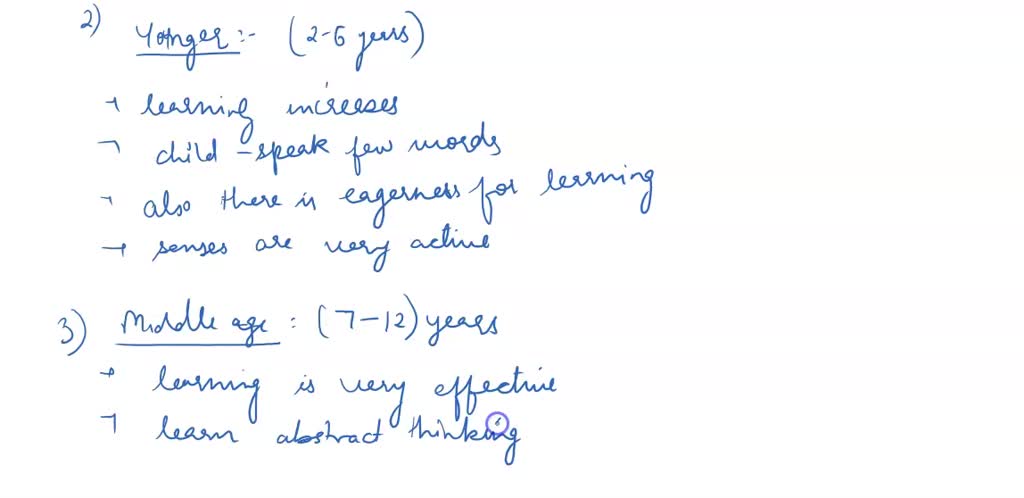 2) Yonger :- (2-6 years)
→ learning increases
→ child - speak few words
→ also there is eagerness for learning
→ senses are very active
3) Middle age : (7-12) years
→ learning is very effective
→ learn abstract thinking